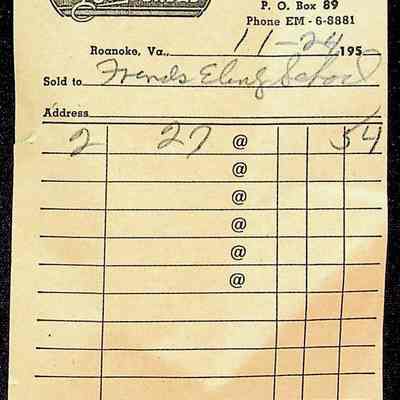 P. O. Box 89
Phone EM - 6-8881
Roanoke, Va., 11-24 195
Sold to Friends Elem School
Address
2 27 @ 54
@
@
@
@
@